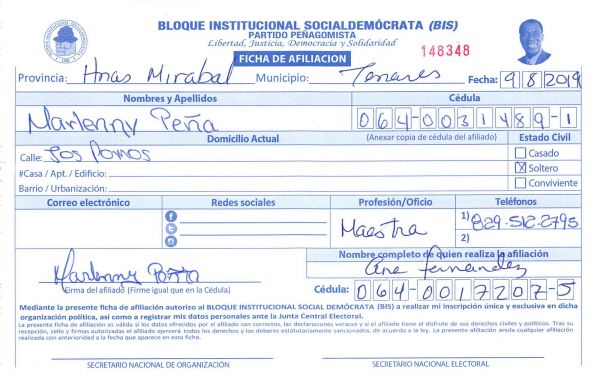 BLOQUE INSTITUCIONAL SOCIALDEMÓCRATA (BIS)
PARTIDO PEÑAGOMISTA
Libertad, Justicia, Democracia y Solidaridad
148348
FICHA DE AFILIACION
Provincia: Hnas Mirabal Municipio: Tenares Fecha: 9/8/2019
Nombres y Apellidos Cédula
Marlenny Peña 064-0031489-1
Domicilio Actual (Anexar copia de cédula del afiliado) Estado Civil
Calle: Los Pomos Casado
#Casa / Apt. / Edificio: X Soltero
Barrio / Urbanización: Conviviente
Correo electrónico Redes sociales Profesión/Oficio Teléfonos
Maestra 1) 829-512-2795
2)
Nombre completo de quien realiza la afiliación
Marlenny Peña Ana Fernandez
Firma del afiliado (Firme igual que en la Cédula) Cédula: 064-0017207-5
Mediante la presente ficha de afiliación autorizo al BLOQUE INSTITUCIONAL SOCIAL DEMÓCRATA (BIS) a realizar mi inscripción única y exclusiva en dicha
organización política, así como a registrar mis datos personales ante la Junta Central Electoral.
La presente ficha de afiliación es válida si los datos ofrecidos por el afiliado son correctos, las declaraciones veraces y si el afiliado tiene el disfrute de sus derechos civiles y políticos. Tras su
recepción, sello y firmas autorizadas el afiliado ejercerá todos los derechos y los deberes estatutariamente sancionados, de acuerdo a la ley. La presente afiliación anula cualquier afiliación
realizada con anterioridad a la fecha que aparece en esta ficha.
SECRETARIO NACIONAL DE ORGANIZACIÓN SECRETARIO NACIONAL ELECTORAL